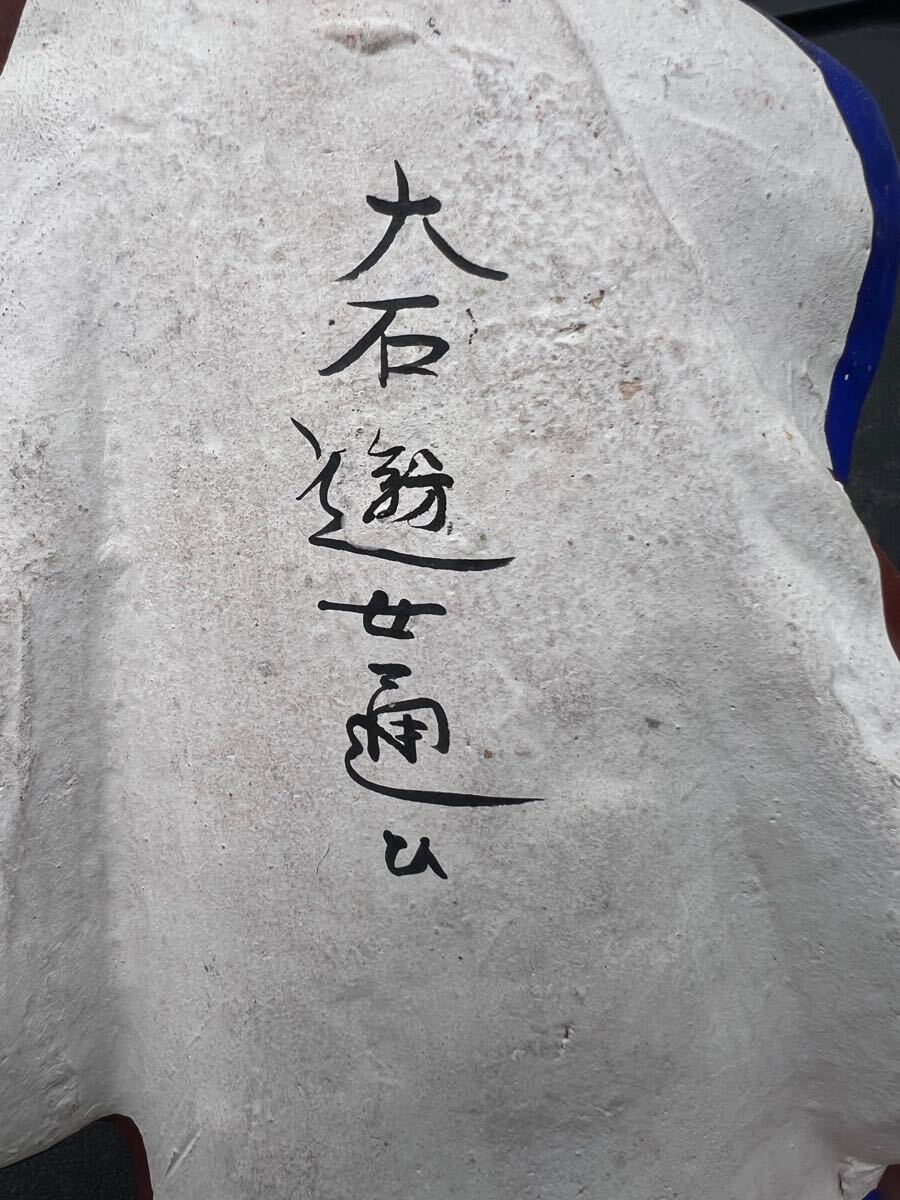 大石遊女通ひ